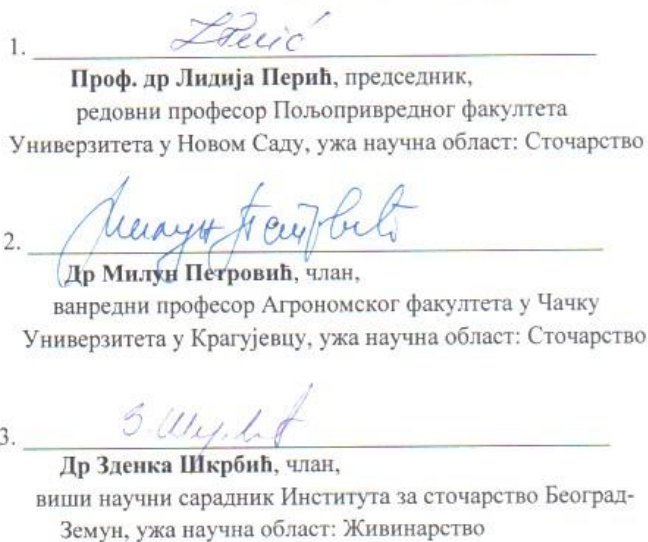 1. LPerić
Проф. др Лидија Перић, председник,
редовни професор Пољопривредног факултета
Универзитета у Новом Саду, ужа научна област: Сточарство
2. Милун Петровић
Др Милун Петровић, члан,
ванредни професор Агрономског факултета у Чачку
Универзитета у Крагујевцу, ужа научна област: Сточарство
3.
Др Зденка Шкрбић, члан,
виши научни сарадник Института за сточарство Београд-
Земун, ужа научна област: Живинарство